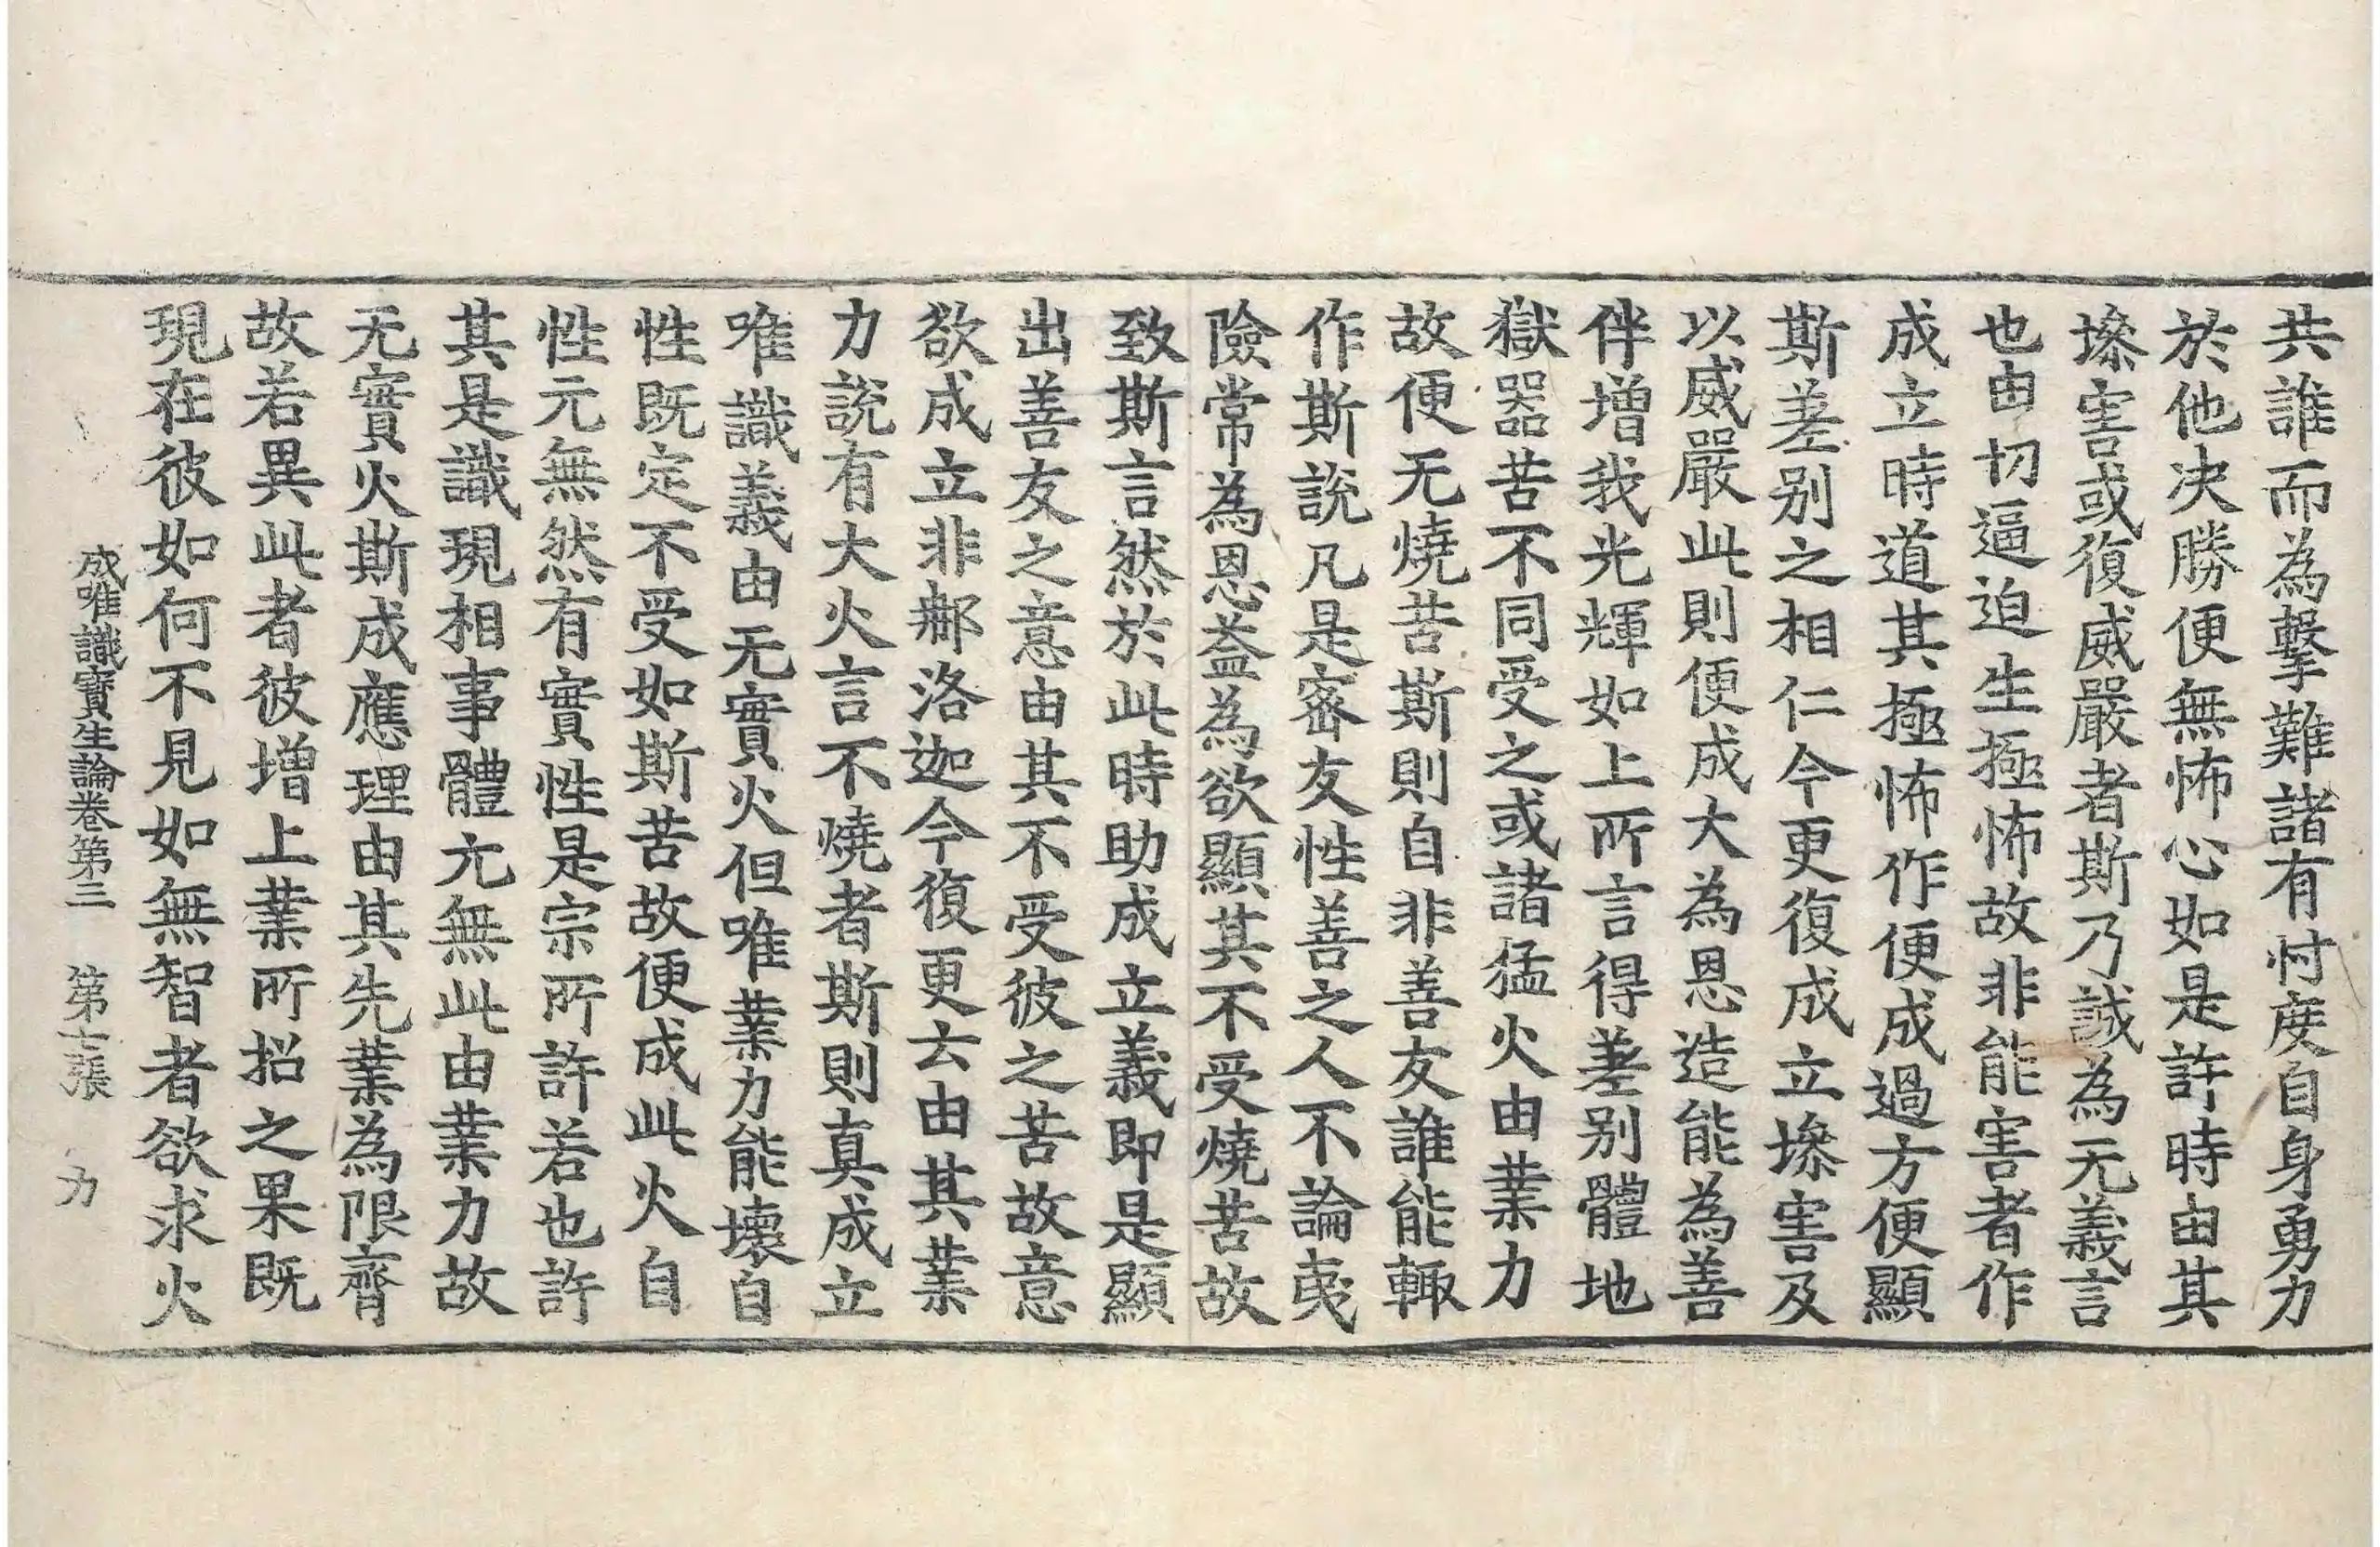 共誰而為擊難諸有忖度自身勇力
於他決勝便無怖心如是許時由其
㙻害或復威嚴者斯乃誠為无義言
也由切逼迫生極怖故非能害者作
成立時道其極怖作便成過方便顯
斯差別之相仁今更復成立㙻害及
以威嚴此則便成大為恩造能為善
伴增我光輝如上所言得差別體地
獄器苦不同受之或諸猛火由業力
故便无燒苦斯則自非善友誰能輙
作斯說凡是密友性善之人不論夷
險常為恩益為欲顯其不受燒苦故
致斯言然於此時助成立義即是顯
出善友之意由其不受彼之苦故意
欲成立非㮈洛迦今復更云由其業
力說有大火言不燒者斯則真成立
唯識義由无實火但唯業力能壞自
性既定不受如斯苦故便成此火自
性元無然有實性是宗所許若也許
其是識現相事體元無此由業力故
无實火斯成應理由其先業為限齊
故若異此者彼增上業所招之果既
現在彼如何不見如無智者欲求火
成唯識寶生論卷第三 第七張 力